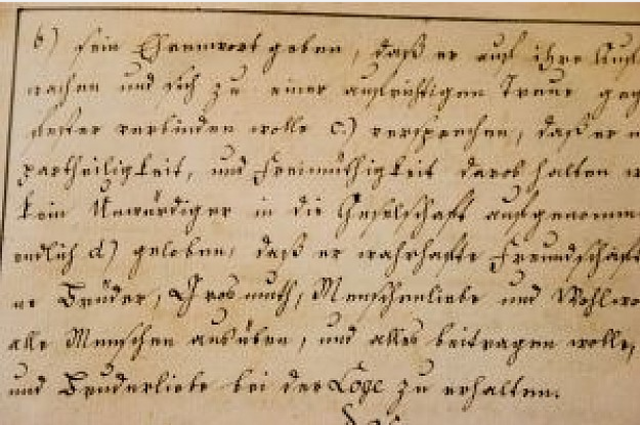 b) sein Ehrenwort geben, daß er auf ihre
machen und sich zu einer aufrichtigen Treue geg
verbinden wolle c.) versprechen, daß er
partheiligkeit, und Freimüthigkeit darob halten w
kein Unwürdiger in die Gesellschaft aufgenomme
endlich d) geloben, daß er wahrhafte Freundschaft
ne Brüder, Grosmuth, Menschenliebe und Wohlwo
alle Menschen ausüben, und alles beitragen wolle,
und Bruderliebe bei der Loge zu erhalten.